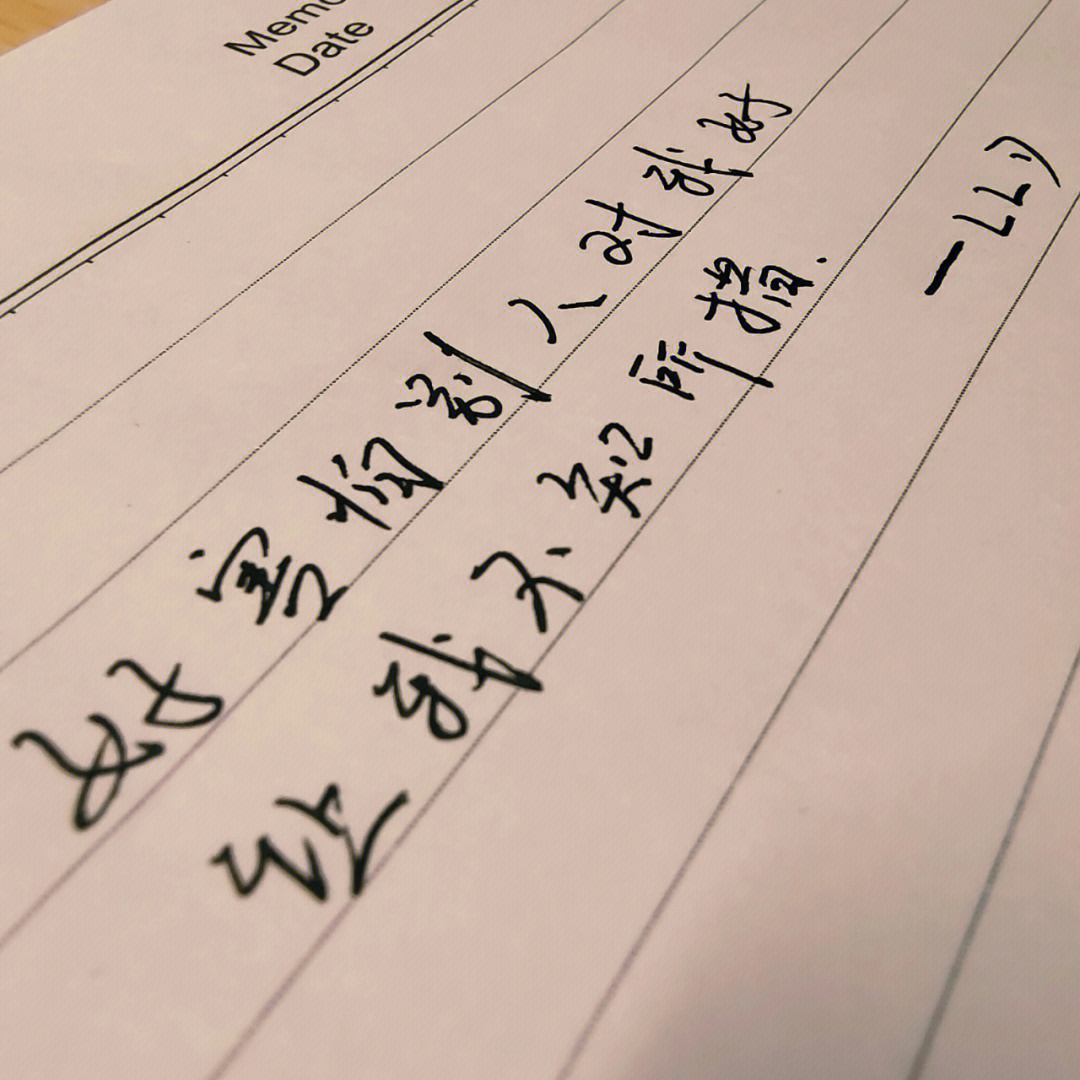 Memo
Date
好害怕别人对我好
让我不知所措.
—LL:)